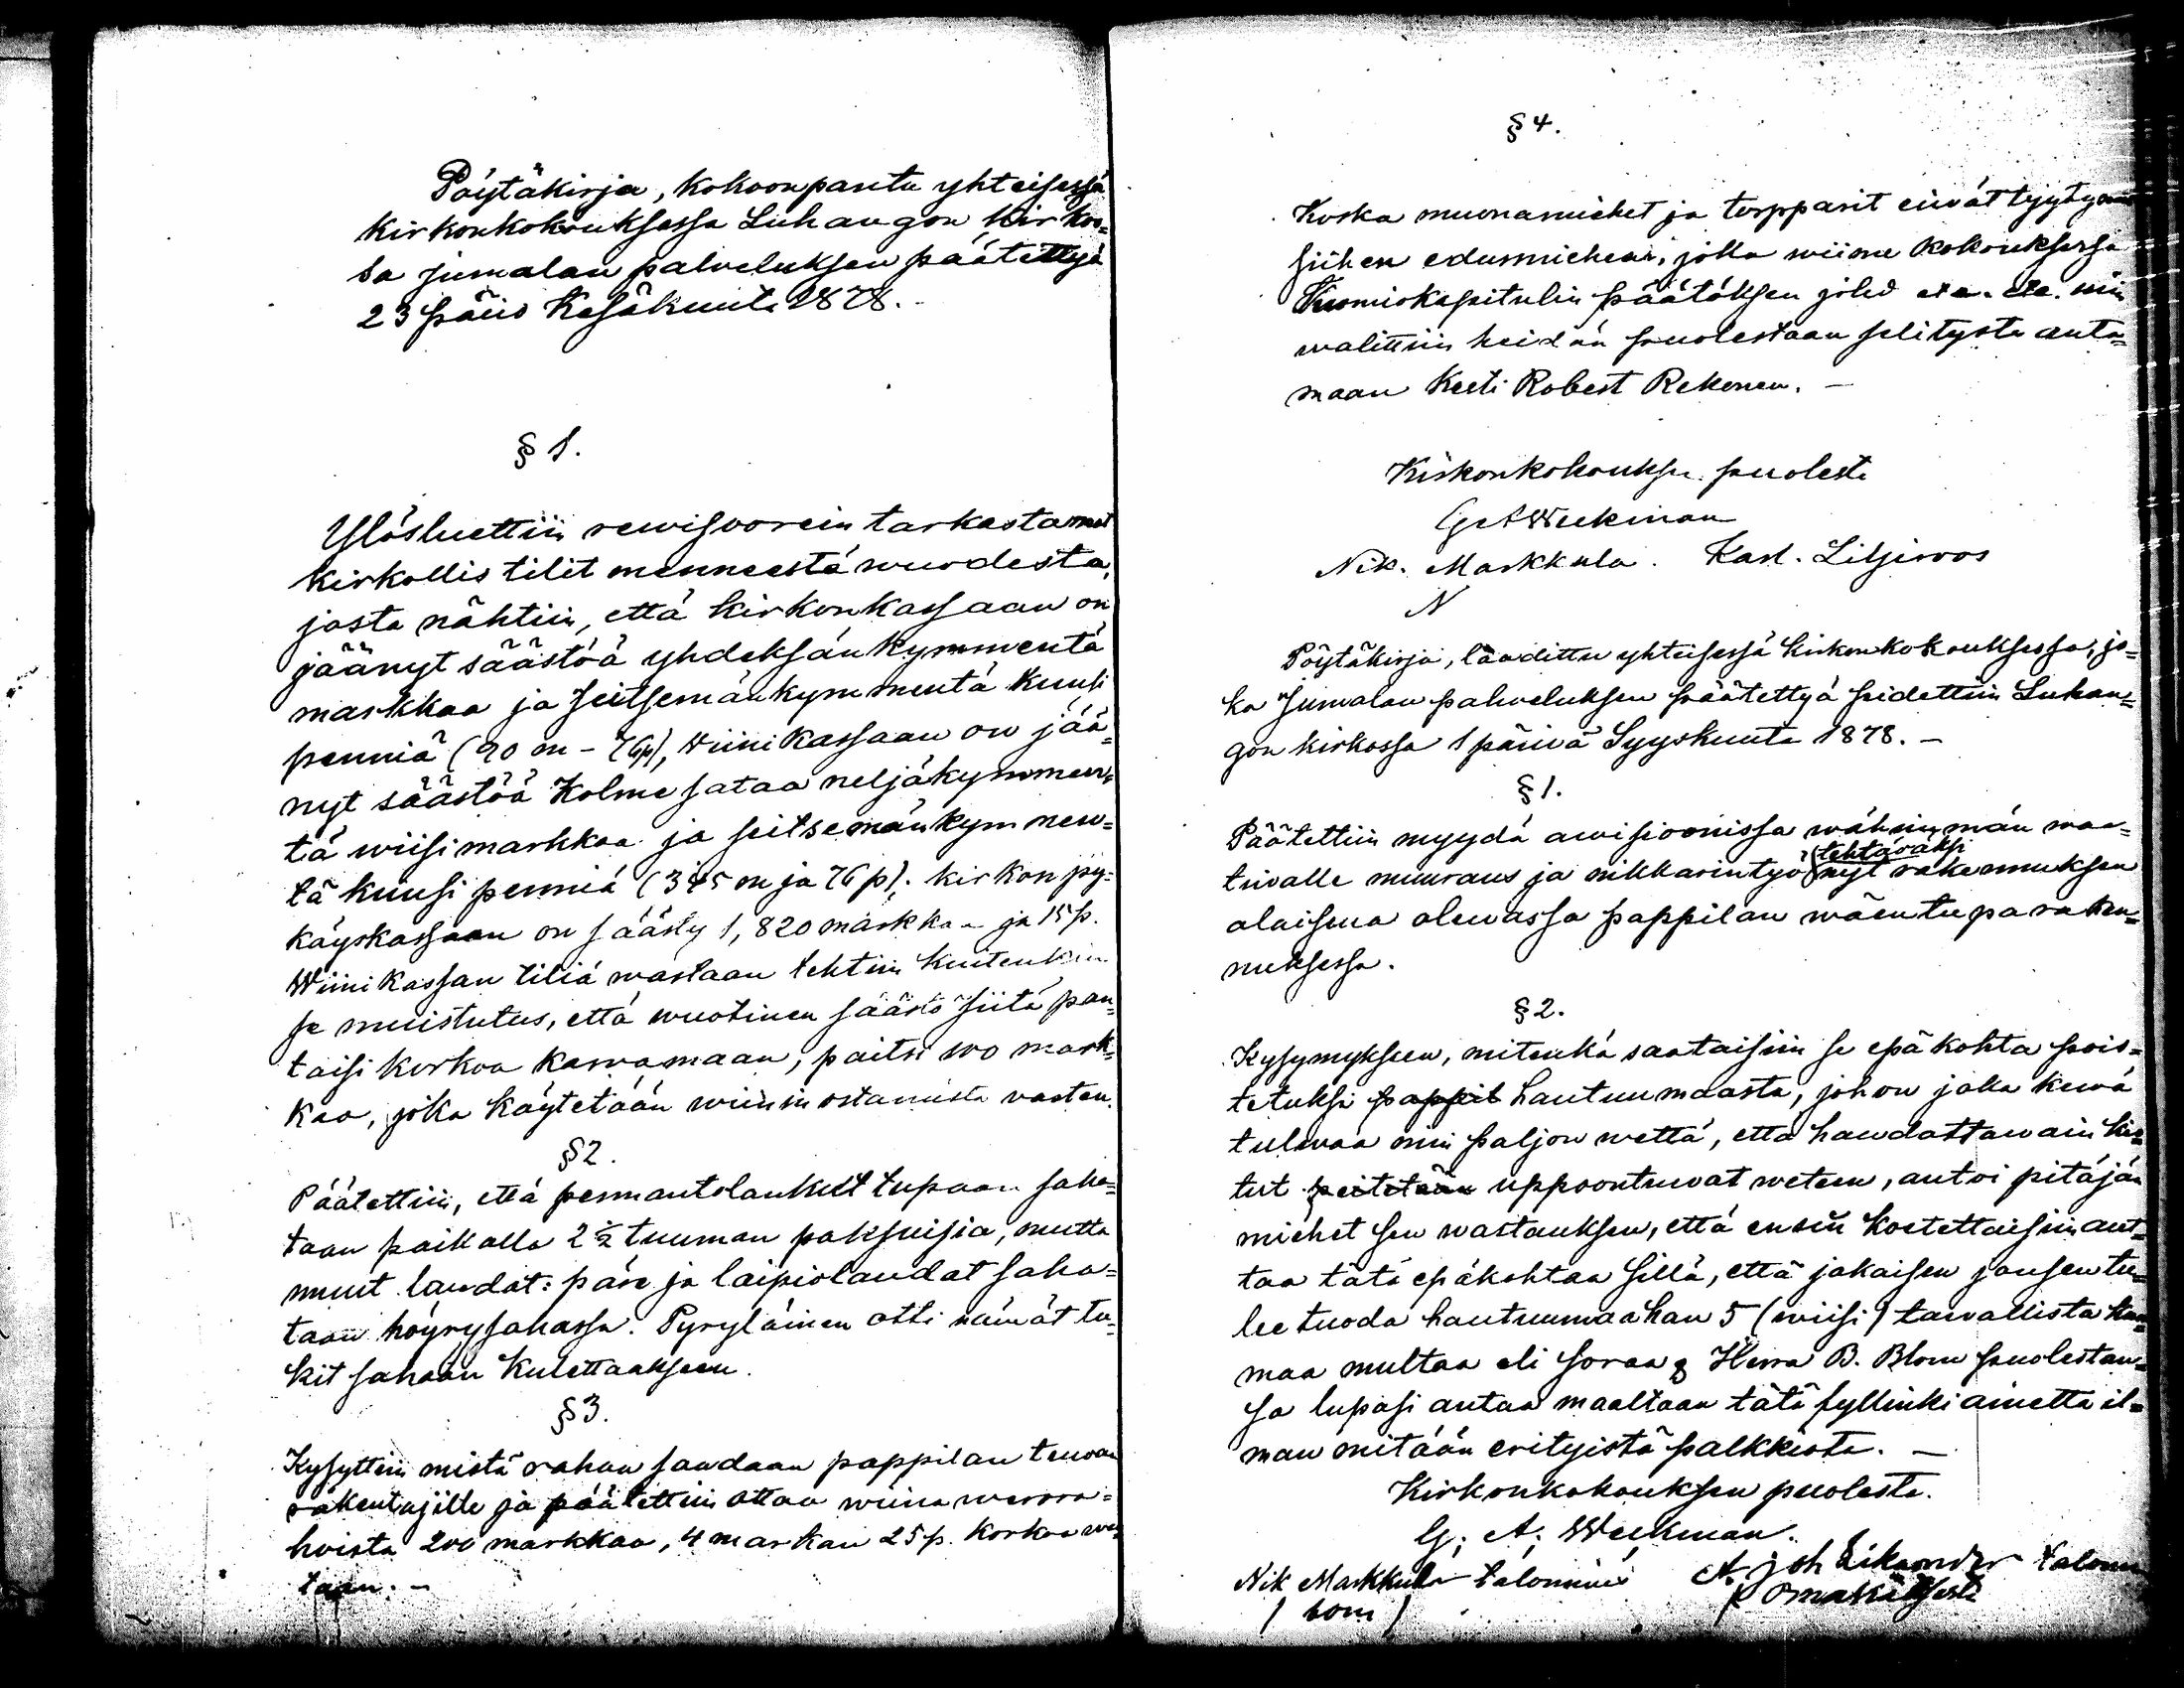 Pöytäkirja, kokoonpantu yhteisessä
kirkonkokouksessa Luhangon kirkos=
sa jumalan palveluksen päätettyä
23 päiv Kesäkuuta 1878.
§ 1.
Ylösluettiin rewisoorein tarkastamat
kirkollis tilit menneestä wuodesta,
josta nähtiin, että kirkonkassaan on
jäänyt säästöä yhdeksänkymmentä
markkaa ja seitsemänkymmentä kuusi
penniä (90 m - 76 p), Wiinikassaan on jää=
nyt säästöä Kolmesataa neljäkymmen=
tä wiisi markkaa ja seitsemänkymmen=
tä kuusi penniä (345 m ja 76 p); kirkon py=
käyskassaan on säästy 1,820 markkaa ja 15 p.
Wiinikassan tiliä wastaan tehtiin kuitenkin
se muistutus, että wuotinen säästö siitä pan=
taisi korkoa kaswamaan, paitsi 100 mark=
kaa, joka käytetään wiinin ostamista varten.
§ 2.
Päätettiin, että permantolankut tupaan saha=
taan paikalla 2 ½ tuuman paksuisia, mutta
muut laudat: päre ja laipiolaudat saha=
taan höyrysahassa. Pyryläinen otti nämät tu=
kit sahaan Kulettaakseen.
§ 3.
Kysyttiin mistä rahaa saadaan pappilan tuwan
rakentajille ja päätettiin ottaa wiina werora=
hoista 200 markkaa, 4 markan 25 p. korkoa was
taan. —
§ 4.
Koska muonamiehet ja torpparit eiwät tyytyneet
siihen edusmieheen, joka wiime kokouksessa
Tuomiokapitulin päätöksen johd etc. etc. niin
walittiin heidän puolestaan selitystä anta=
maan Kesti Robert Rekonen. —
Kirkonkokouksen puolesta
G A Weckman
Nik. Markkula. Karl. Liljeroos
N
Pöytäkirja, laadittu yhteisessä kirkonkokouksessa, jo=
ka Jumalan palveluksen päätettyä pidettiin Luhan=
gon kirkossa 1 päivä Syyskuuta 1878. —
§ 1.
Päätettiin myydä awisioonissa wähimmän waa=
tivalle muuraus ja nikkarintyö tehtäväksi nyt rakennuksen
alaisena olewassa pappilan wäentuparaken=
nuksessa.
§ 2.
Kysymykseen, mitenkä saataisiin se epäkohta pois=
tetuksi pappil hautuumaasta, johon joka kewä
tulewaa niin paljon wettä, että haudattawain kir=
tut peitetään uppoontuwat weteen, antoi pitäjän
miehet sen wastauksen, että ensin koetettaisiin aut=
taa tätä epäkohtaa sillä, että jokaisen jousen tu=
lee tuoda hautuumaahan 5 (wiisi) tawallista kuor=
maa multaa eli soraa; Herra B. Blom puolestan=
sa lupasi antaa maaltaan tätä fyllinki ainetta il=
man mitään erityistä palkkiota. —
Kirkonkokouksen puolesta.
G; A; Weckman.
Nik Markkula talonmies A. Joh Sikander talonm
/ bom / omakätisesti